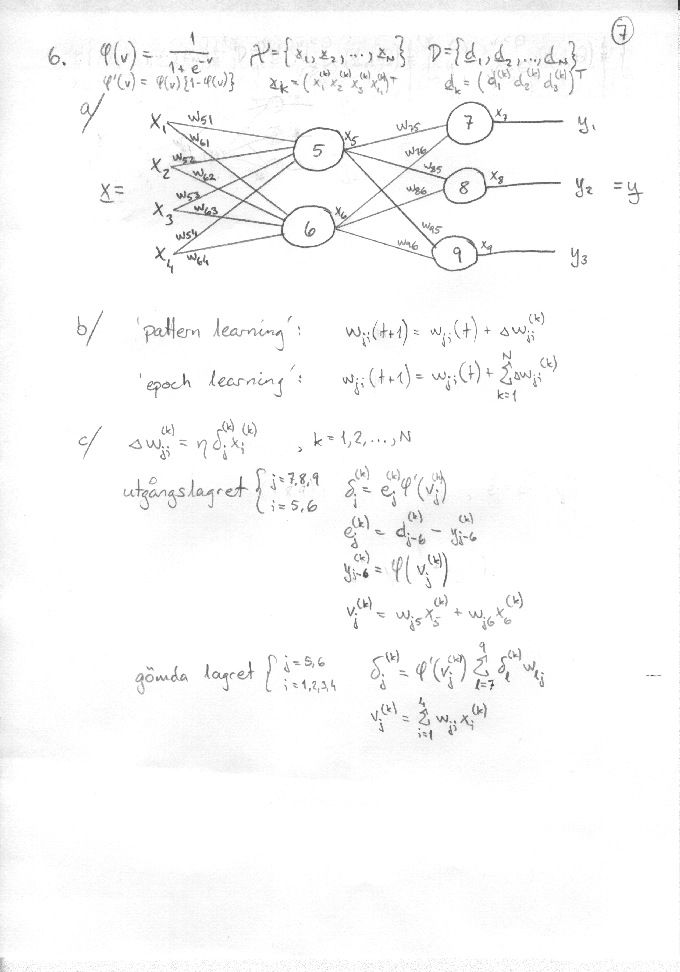 7
6. φ(v) = 1/(1+e^-v) 𝒳 = {x₁, x₂, ..., x_N} D = {d₁, d₂, ..., d_N}
φ'(v) = φ(v){1-φ(v)} x_k = (x₁^(k) x₂^(k) x₃^(k) x₄^(k))^T d_k = (d₁^(k) d₂^(k) d₃^(k))^T
a/
x₁ w51 w61 5 x₅ w75 w76 7 x₇ y₁
x₂ w52 w62 w85 w86 8 x₈ y₂ = y
x =
x₃ w53 w63 6 x₆
x₄ w54 w64 w95 w96 9 x₉ y₃
b/ 'pattern learning': w_ji(t+1) = w_ji(t) + Δw_ji^(k)
'epoch learning': w_ji(t+1) = w_ji(t) + Σ_{k=1}^{N} Δw_ji^(k)
c/ Δw_ji^(k) = η δ_j^(k) x_i^(k) , k = 1,2,...,N
utgångslagret { j=7,8,9 i=5,6 δ_j^(k) = e_j^(k) φ'(v_j^(k))
e_j^(k) = d_{j-6}^(k) - y_{j-6}^(k)
y_{j-6}^(k) = φ(v_j^(k))
v_j^(k) = w_j5 x_5^(k) + w_j6 x_6^(k)
gömda lagret { j=5,6 i=1,2,3,4 δ_j^(k) = φ'(v_j^(k)) Σ_{l=7}^{9} δ_l^(k) w_lj
v_j^(k) = Σ_{i=1}^{4} w_ji x_i^(k)